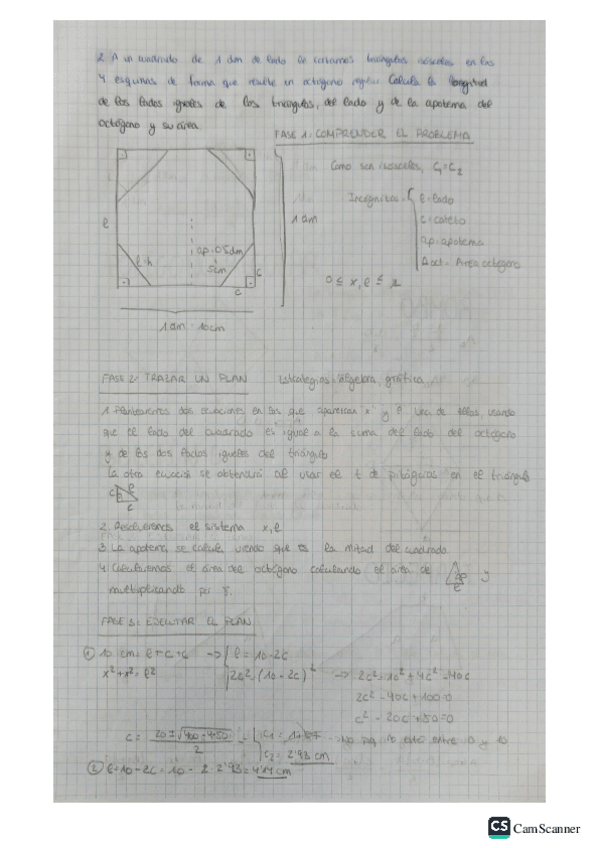 2. A un cuadrado de 1 dm de lado le cortamos triángulos isósceles en las
4 esquinas de forma que resulte un octógono regular. Calcula la longitud
de los lados iguales de los triángulos, del lado y de la apotema del
octógono y su área.
FASE 1: COMPRENDER EL PROBLEMA
Como son isósceles, C1=C2
Incógnitas
l=lado
c=cateto
ap=apotema
Aoct = Área octógono
0 ≤ x, l ≤
1 dm
l
ap=0.5dm
5cm
l=h
c
c
1 dm = 10cm
FASE 2: TRAZAR UN PLAN
Estrategias: álgebra, gráfica
1. Plantearemos dos ecuaciones en las que aparezcan x y l. Una de ellas, usando
que el lado del cuadrado es igual a la suma del lado del octógono
y de los dos lados iguales del triángulo
La otra ecuación se obtendrá al usar el t de pitágoras en el triángulo
2. Resolveremos el sistema x, l
3. La apotema se calcula viendo que es la mitad del cuadrado
4. Calcularemos el área del octógono calculando el área de y
multiplicando por 8.
FASE 3: EJECUTAR EL PLAN
① 10 cm = l+c+c -> l = 10-2c
x²+x² = l² 2c² = (10-2c)² -> 2c² = 10² + 4c² - 40c
2c² - 40c + 100 = 0
c² - 20c + 50 = 0
c = 20 ± √400-4·50 / 2 = c1 = no está entre 0 y 10
c2 = 2'93 cm
② l = 10-2c = 10 - 2·2'93 = 4'14 cm
CS CamScanner